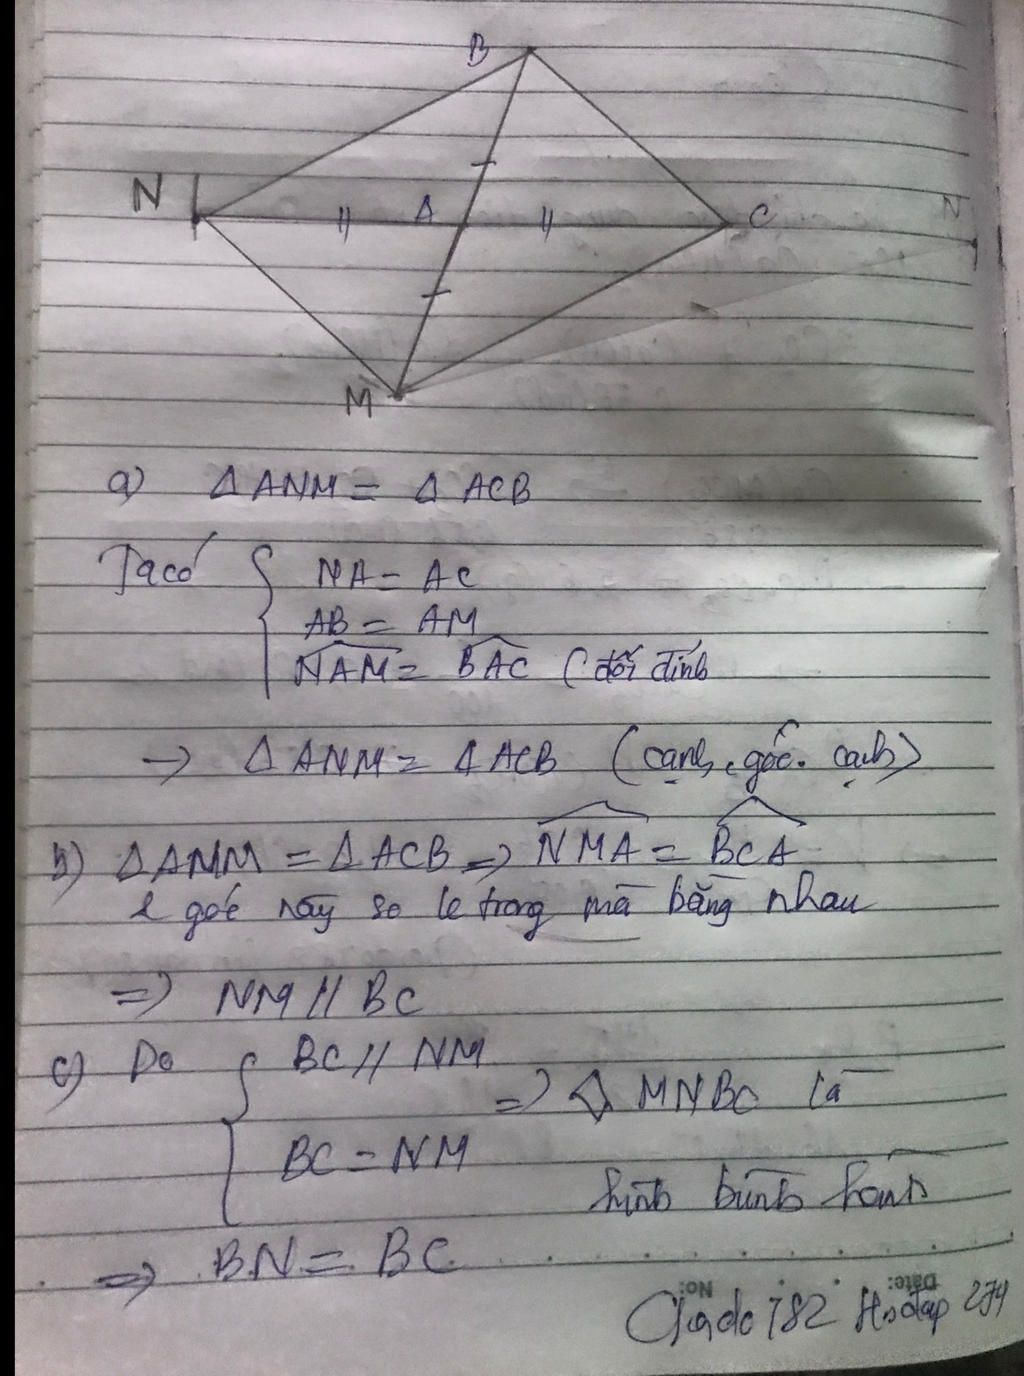 B
N A C N
M
a) Δ ANM = Δ ACB
Ta có { NA = AC
AB = AM
NAM = BAC (đối đỉnh
→ Δ ANM = Δ ACB (cạnh, góc. cạnh)
b) Δ ANM = Δ ACB => NMA = BCA
2 góc này so le trong mà bằng nhau
=> NM // BC
c) Do { BC // NM
=> MNBC là
BC = NM
hình bình hành
=> BN = BC
No: Date:
782 274